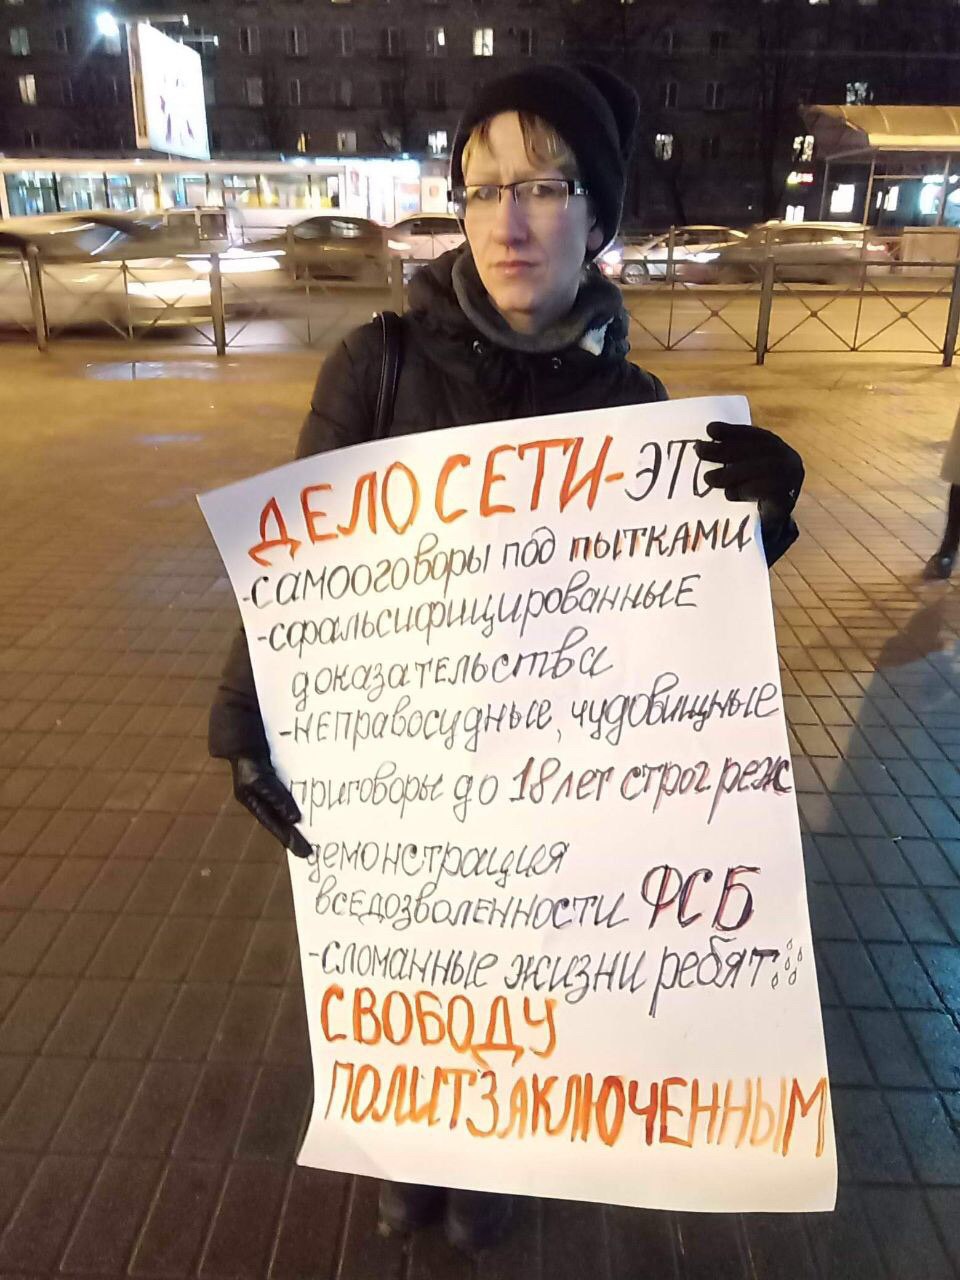 ДЕЛО СЕТИ - ЭТО
-САМООГОВОРЫ ПОД ПЫТКАМИ
-СФАЛЬСИФИЦИРОВАННЫЕ
ДОКАЗАТЕЛЬСТВА
-НЕПРАВОСУДНЫЕ, ЧУДОВИЩНЫЕ
ПРИГОВОРЫ ДО 18 ЛЕТ СТРОГ РЕЖ
ДЕМОНСТРАЦИЯ
ВСЕДОЗВОЛЕННОСТИ ФСБ
-СЛОМАННЫЕ ЖИЗНИ РЕБЯТ
СВОБОДУ
ПОЛИТЗАКЛЮЧЕННЫМ